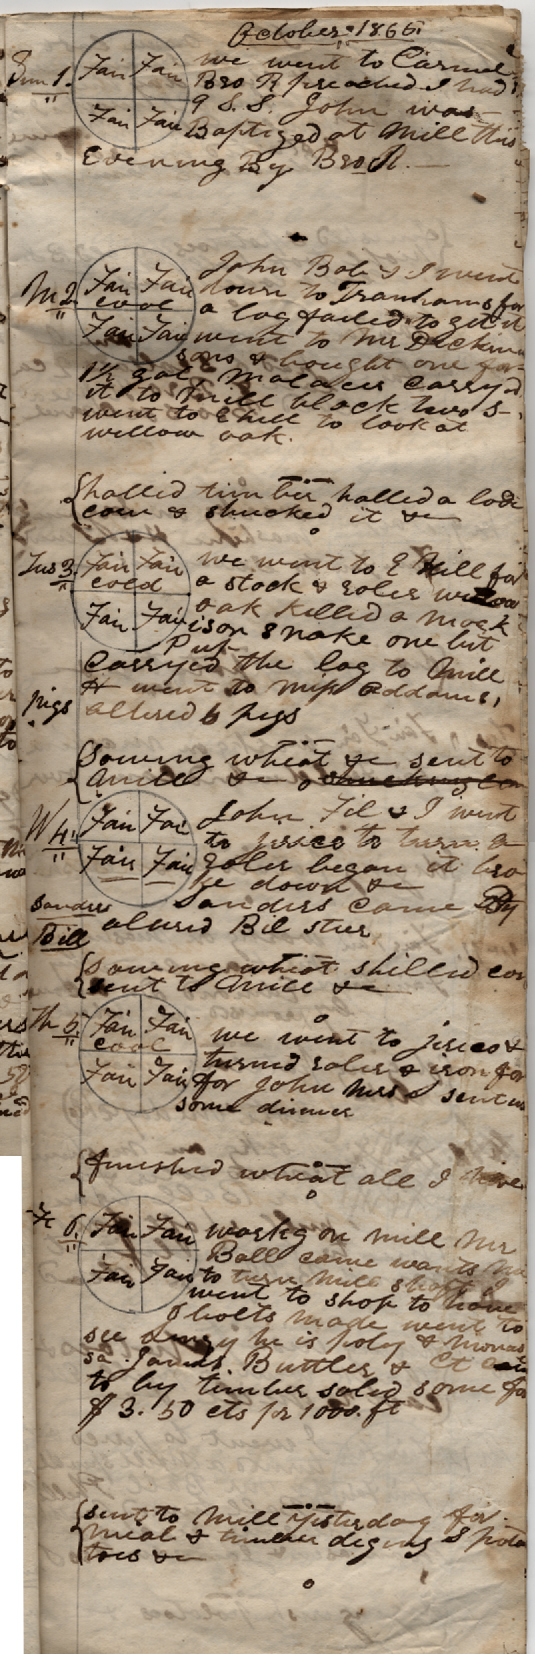 October 1865
Sun 1. Fair Fair we went to Carmel
Bro R preached I had
Fair Fair 9 S.S. John was
Baptized at Mill this
Evening By Bro R.
M 2 Fair Fair John Bob & I went
cool down to Tranhams for
a log failed to get it
Fair Fair went to Mr Dickin
sons & bought one for
1½ gal Molaces carryd
it to Mill black two s
went to E hill to look at
willow oak.
halled timber halled a lode
corn & shucked it &c
Tus 3. Fair Fair we went to E Hill for
cold a stock & roler willow
Fair Fair oak killed a mock
ison snake one bit
Pup
carryed the log to Mill
& went to Miss Addams,
pigs altered 6 pigs
Sowing wheat &c sent to
Mill &c
W 4. Fair Fair John Fil & I went
to jerico to turn a
Fair Fair roler began it bro
ke down &c
Sanders Sanders came By
Bill altered Bil stier
Sowing wheat shilled cor
sent to Mill &c
Th 5 Fair Fair we went to jerico &
cool turned roler & iron for
Fair Fair for John Mrs S sent us
some dinner
finished wheat all I have
Fr 6. Fair Fair workg on mill Mr
Ball came wants me
Fair Fair to turn Mill shaft I
went to shop to have
J bolts made went to
see he is poly &
sa James. Buttler & Ct
to by timber soled some for
$3.50 cts pr 1000. ft
sent to Mill yisterday for
meal & timber diging S pota
toes &c